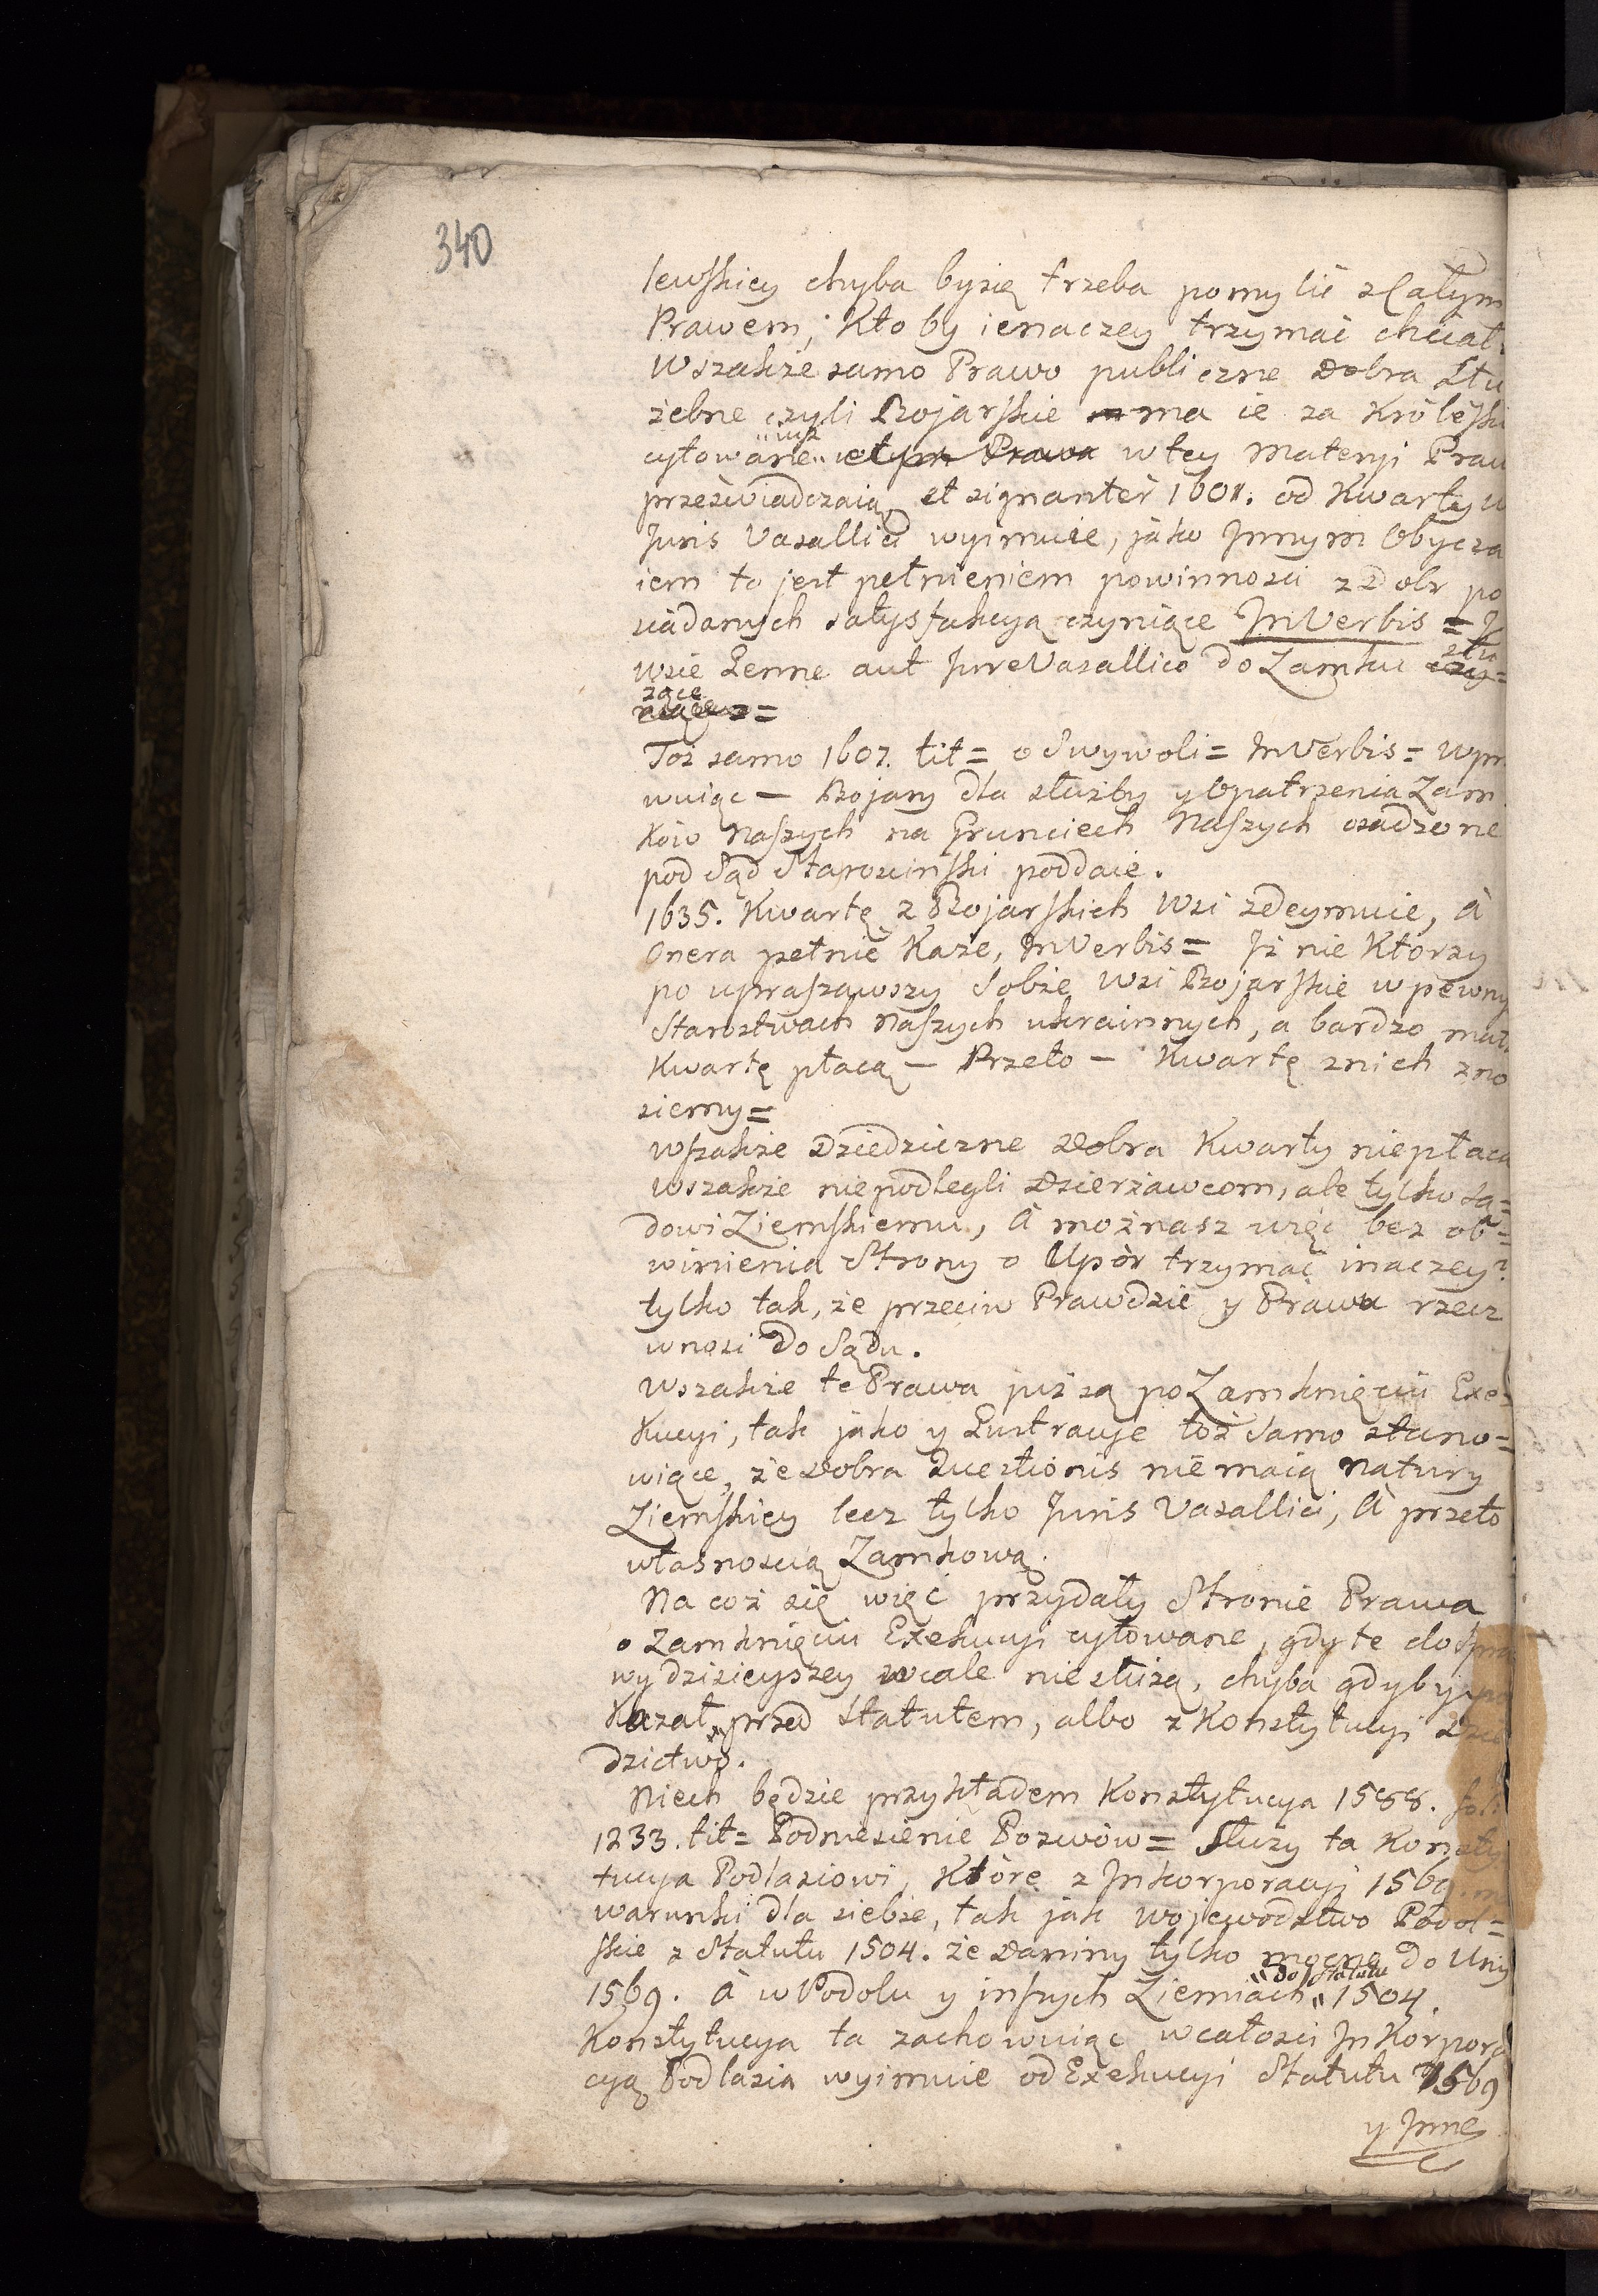 340
lewskiey chyba bysię trzeba pomylić z Całym
Prawem, Ktoby ienaczey trzymać chciał.
Wszakże samo Prawo publiczne Dobra Słu
żebne czyli Bojarskie ma ie za Króleski
cytowane iuż w tey Materyi Praw
przeświadczaią, et signanter 1601. od Kwarty w
Juris Vasallici wyimuie, jako Jnnym Obycza
iem to jest pełnieniem powinności z Dobr po
siadanych satysfakcyą czyniące JnVerbis =
wsie Lenne aut Jure Vasallico do Zamku słu
żące =
Toż samo 1607. tit = o Swywoli = JnVerbis = Wpr
wuiąc — Bojary dla służby y Opatrzenia Zam
Ków Naszych na Grunciech Naszych osadzone
pod Sąd Starościński poddaie.
1635. Kwartę z Bojarskich Wsi zdeymuie, A
Onera pełnić Każe, JnVerbis = Jż nie Którzy
po upraszawszy Sobie Wsi Bojarskie w pewny
Starostwach Naszych ukrainnych, a bardzo mał
Kwartę płacą — Przeto — Kwartę znich zno
siemy =
Wszakże Dziedziczne Dobra Kwarty niepłacą
wszakże niepodlegli Dzierżawcom, ale tylko Są=
dowi Ziemskiemu, A możnasz więc bez ob=
winienia Strony o Upór trzymać inaczey?
tylko tak, że przeciw Prawdzie y Prawu rzecz
wnosi do Sądu.
Wszakże te Prawa już są po Zamknięciu Exe=
Kucyi, tak jako y Lustracye toż Samo stano=
wiące, że Dobra Questionis nie maią Natury
Ziemskiey lecz tylko Juris Vasallici, A przeto
własnoscią Zamkową.
Na coż się więc przydały Stronie Prawa
o Zamknięciu Exekucyi cytowane, gdy te do Spra
wy dzisieyszey wcale nie służą, chyba gdyby po
Kazał przed Statutem, albo z Konstytucyi Dzie
dzictwo.
Niech będzie przykładem Konstytucya 1588. fol:
1233. tit = Podniesienie Pozwów = Służy ta Konsty
tucya Podlasiowi, Które z Jnkorporacyi 1569. m
warunki dla siebie, tak jak Wojewodztwo Podol=
skie z Statutu 1504. że Daniny tylko mocne do Unij
1569. A w Podolu y inszych Ziemiach do Statutu 1504.
Konstytucya ta zachowuiąc wcałosci Jnkorpora
cyą Podlasia wyimuie od Exekucyi Statutu 1569
y Jnne